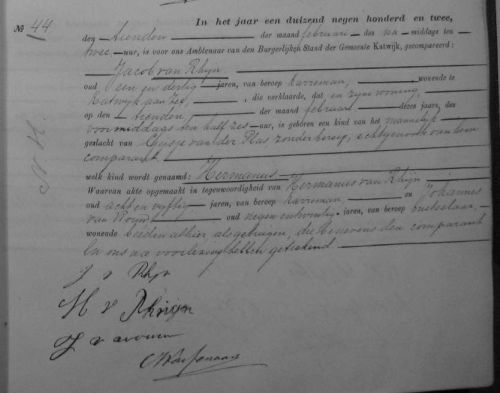 No 44
In het jaar een duizend negen honderd en twee,
den tienden der maand februari des na middags ten
twee uur, is voor ons Ambtenaar van den Burgerlijken Stand der Gemeente Katwijk, gecompareerd:
Jacob van Rhijn
oud een en dertig jaren, van beroep karreman, wonende te
Katwijk aan Zee, die verklaarde, dat en zijne woning
op den tienden der maand februari dezes jaars, des
voormiddags ten half zes uur, is geboren een kind van het mannelijk
geslacht van van der Plas zonder beroep, echtgenoote van hem
comparant
welk kind wordt genaamd: Hermanus
Waarvan akte opgemaakt in tegenwoordigheid van Hermanus van Rhijn
oud acht en vijftig jaren, van beroep karreman, en Johannes
van oud negen entwintig jaren, van beroep
wonende beiden alhier als getuigen, die benevens den comparant
en ons na voorlezing hebben geteekend
J v Rhijn
H v Rhijn
J v